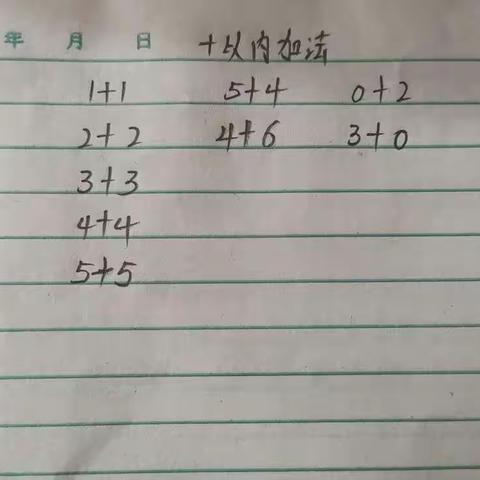 年 月 日 十以内加法
1+1 5+4 0+2
2+2 4+6 3+0
3+3
4+4
5+5